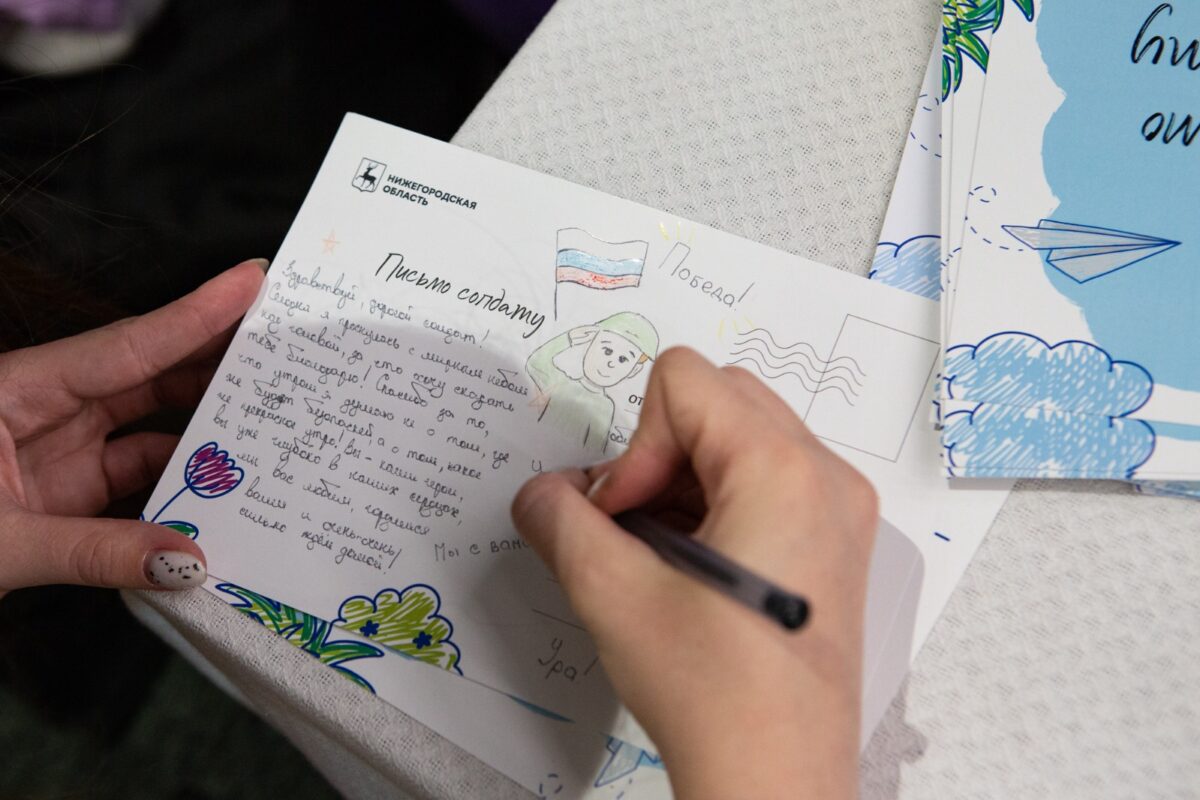 НИЖЕГОРОДСКАЯ
ОБЛАСТЬ
Письмо солдату
Победа!
Здравствуй, дорогой солдат!
Сегодня я проснулась с мирным небом
над головой, за что хочу сказать
тебе благодарю! Спасибо за то,
что утром я думаю не о том, где
же будет безопасней, а о том, какое
же прекрасное утро! Вы - наши герои,
вы уже глубоко в наших сердцах,
мы вас любим, гордимся
вами и очень-очень
сильно ждём домой!
Мы с вами
Ура!
от